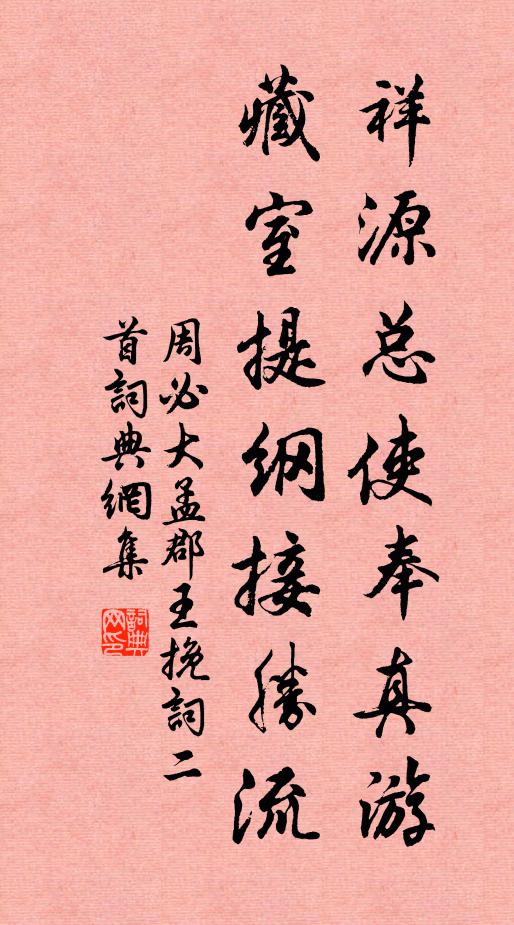 祥源总使奉真游
藏室提纲接勝流
周必大孟郡王挽詞二
首詞典網集
詞典
网印